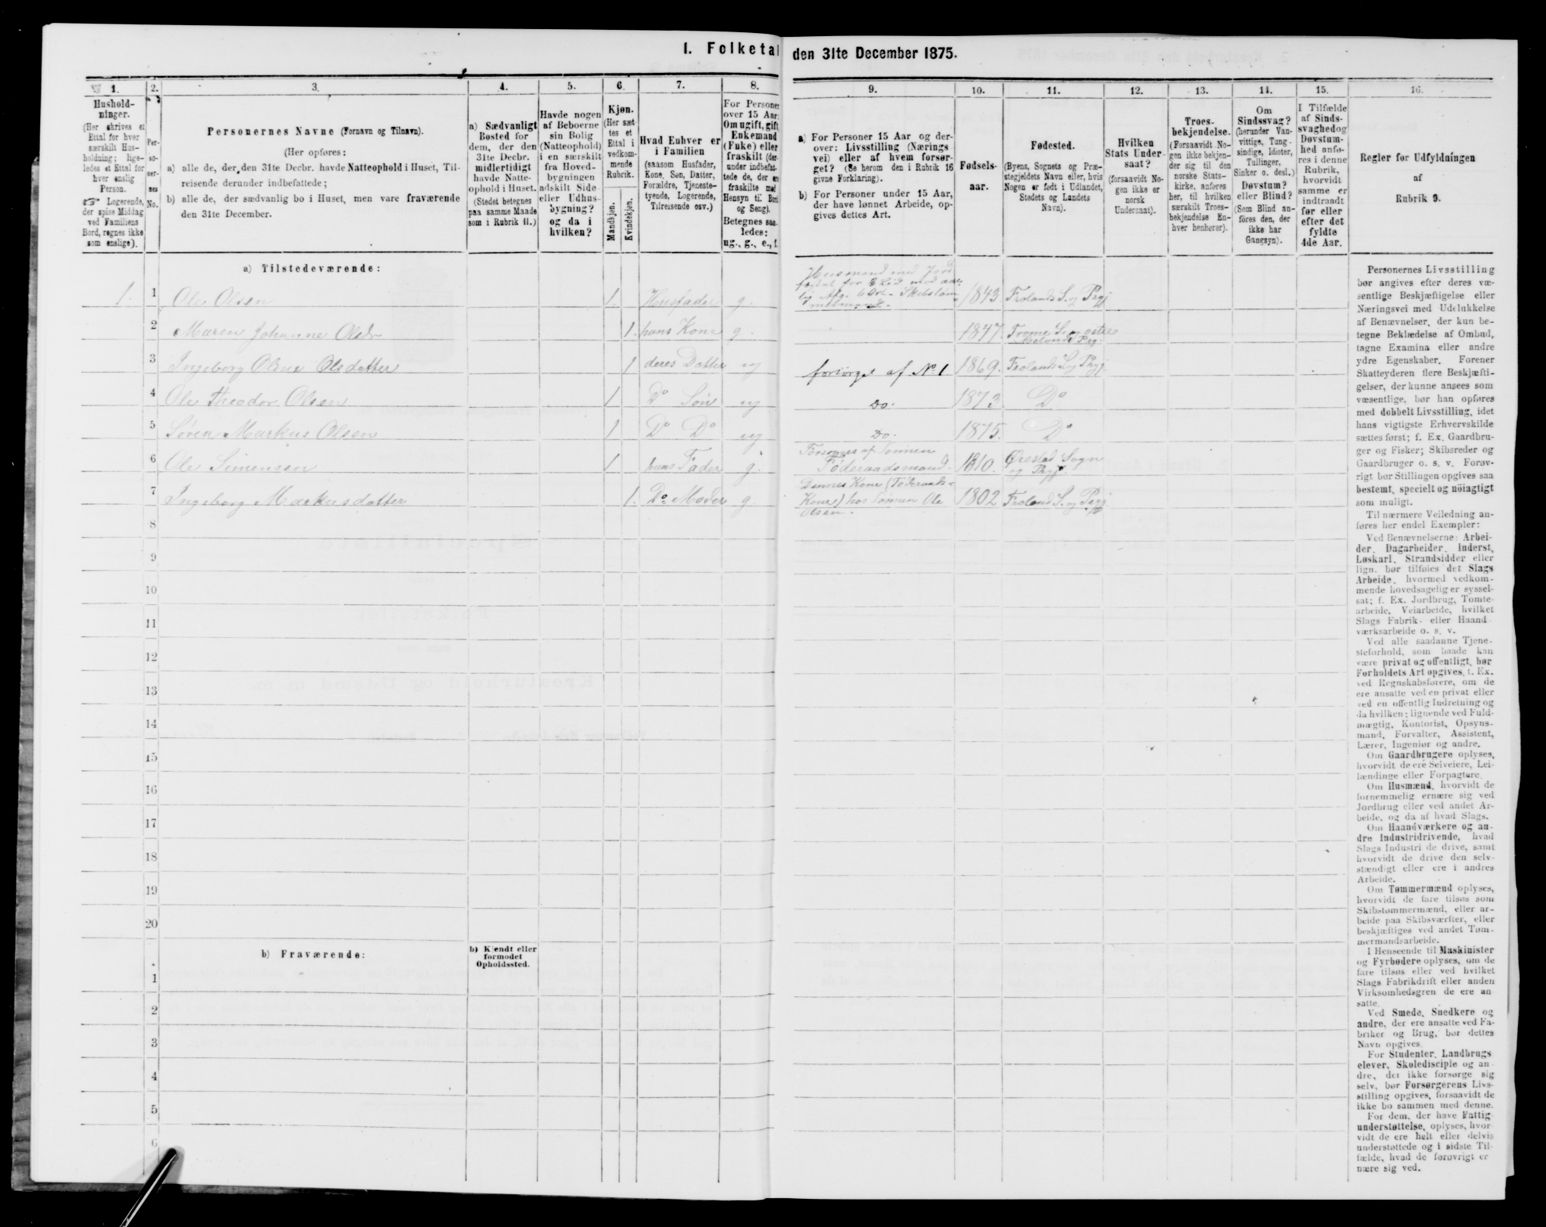 1. Folketal den 31te December 1875.
1. 2. 3. 4. 5. 6. 7. 8. 9. 10. 11. 12. 13. 14. 15. 16.
Hushold-
ninger.
(Her skrives et
Ettal for hver
særskilt Hus-
holdning; lige-
ledes et Ettal for
hver enslig
Person.
Logerende,
der spise Middag
ved Familiens
Bord, regnes ikke
som enslige).
Per-
so-
ner-
nes
No.
Personernes Navne (Fornavn og Tilnavn).
(Her opføres:
a) alle de, der den 31te Decbr. havde Natteophold i Huset, Til-
reisende derunder indbefattede;
b) alle de, der sædvanlig bo i Huset, men vare fraværende
den 31te December.
a) Sædvanligt
Bosted for
dem, der den
31te Decbr.
midlertidigt
havde Natte-
ophold i Huset.
(Stedet betegnes
paa samme Maade
som i Rubrik 11.)
Havde nogen
af Beboerne
sin Bolig
(Natteophold)
i en særskilt
fra Hoved-
bygningen
adskilt Side-
eller Udhus-
bygning?
og da i
hvilken?
Kjøn.
(Her sæt-
tes et
Ettal i
vedkom-
mende
Rubrik.
Mandkjøn.
Kvindekjøn.
Hvad Enhver er
i Familien
(saasom Husfader,
Kone, Søn, Datter,
Forældre, Tjeneste-
tyende, Logerende,
Tilreisende osv.)
For Personer
over 15 Aar:
Om ugift, gift,
Enkemand
(Fuke) eller
fraskilt (der-
under indbefat-
tede de, der ere
fraskilte med
Hensyn til Bord
og Seng).
Betegnes saa-
ledes:
ug., g., e., f.
a) For Personer 15 Aar og der-
over: Livsstilling (Nærings-
vei) eller af hvem forsør-
get? (Se herom den i Rubrik 16
givne Forklaring).
b) For Personer under 15 Aar,
der have lønnet Arbeide, op-
gives dettes Art.
Fødsels-
aar.
Fødested.
(Byens, Sognets og Præ-
stegjeldets Navn eller, hvis
Nogen er født i Udlandet,
Stedets og Landets
Navn).
Hvilken
Stats Under-
saat?
(forsaavidt No-
gen ikke er
norsk
Undersaat).
Troes-
bekjendelse.
(Forsaavidt No-
gen ikke bekjen-
der sig til den
norske Stats-
kirke, anføres
her, til hvilken
særskilt Troes-
bekjendelse En-
hver henhører).
Om
Sindssvag?
(herunder Van-
vittige, Tung-
sindige, Idioter,
Tullinger,
Sinker o. desl.)
Døvstum?
eller Blind?
(Som Blind an-
føres den, der
ikke har
Gangsyn).
I Tilfælde
af Sinds-
svaghed og
Døvstum-
hed anfø-
res i denne
Rubrik,
hvorvidt
samme er
indtraadt
før eller
efter det
fyldte
4de Aar.
Regler for Udfyldningen
af
Rubrik 9.
a) Tilstedeværende:
1. 1 Ole Olsen 1. Husfader g. Husmand med Jord 1843 Frolands S. og Prgj
2 Maren Johanne Olsdr 1. hans Kone g. 1847.
3 Ingeborg Oline Olsdatter 1 deres Datter ug forsørget af No 1 1869. Frolands S. og Prgj
4 Ole Theodor Olsen 1 Do Søn ug Do. 1873. Do
5 Søren Markus Olsen 1 Do Do ug Do. 1875. Do
6 Ole Simensen 1 hans Fader g. Forsørges af Sønnen
Føderaadsmand 1810. Øiestad Sogn
og Prgj
7 Ingeborg Markusdatter 1. Do Moder g Dennes Kone (Føderaads-
Kone) hos Sønnen Ole
Olsen. 1802 Froland S. og Prgj
8
9
10
11
12
13
14
15
16
17
18
19
20
b) Fraværende:
b) Kjendt eller
formodet
Opholdssted.
1
2
3
4
5
6
Personernes Livsstilling
bør angives efter deres væ-
sentlige Beskjæftigelse eller
Næringsvei med Udelukkelse
af Benævnelser, der kun be-
tegne Beklædelse af Ombud,
tagne Examina eller andre
ydre Egenskaber. Forener
Skatteyderen flere Beskjæfti-
gelser, der kunne ansees som
væsentlige, bør han opføres
med dobbelt Livsstilling, idet
hans vigtigste Erhvervskilde
sættes først; f. Ex. Gaardbru-
ger og Fisker; Skibsreder og
Gaardbruger o. s. v. Forøv-
rigt bør Stillingen opgives saa
bestemt, specielt og nøiagtigt
som muligt.
Til nærmere Veiledning an-
føres her endel Exempler:
Ved Benævnelserne: Arbei-
der, Dagarbeider, Inderst,
Løskarl, Strandsidder eller
lign. bør tilføies det Slags
Arbeide, hvormed vedkom-
mende hovedsagelig er syssel-
sat; f. Ex. Jordbrug, Tomte-
arbeide, Veiarbeide, hvilket
Slags Fabrik- eller Haand-
værksarbeide o. s. v.
Ved alle saadanne Tjene-
steforhold, som baade kan
være privat og offentligt, bør
Forholdets Art opgives, f. Ex.
ved Regnskabsførere, om de
ere ansatte ved en privat eller
ved en offentlig Indretning og
da hvilken; lignende ved Fuld-
mægtig, Kontorist, Opsyns-
mand, Forvalter, Assistent,
Lærer, Ingeniør og andre.
Om Gaardbrugere oplyses,
hvorvidt de ere Selveiere, Lei-
lændinge eller Forpagtere.
Om Husmænd, hvorvidt de
fornemmelig ernære sig ved
Jordbrug eller ved andet Ar-
beide, og da af hvad Slags.
Om Haandværkere og an-
dre Industridrivende, hvad
Slags Industri de drive, samt
hvorvidt de drive den selv-
stændigt eller ere i andres
Arbeide.
Om Tømmermænd oplyses,
hvorvidt de fare tilsøs som
Skibstømmermænd, eller ar-
beide paa Skibsværfter, eller
beskjæftiges ved andet Tøm-
mermandsarbeide.
I Henseende til Maskinister
og Fyrbødere oplyses, om de
fare tilsøs eller ved hvilket
Slags Fabrikdrift eller anden
Virksomhedsgren de ere an-
satte.
Ved Smede, Snedkere og
andre, der ere ansatte ved Fa-
briker og Brug, bør dettes
Navn opgives.
For Studenter, Landbrugs-
elever, Skoledisciple og an-
dre, der ikke forsørge sig
selv, bør Forsørgerens Livs-
stilling opgives, forsaavidt de
ikke bo sammen med denne.
For dem, der have Fattig-
understøttelse, oplyses, hvor-
vidt de ere helt eller delvis
understøttede og i sidste Til-
fælde, hvad de forøvrigt er-
nære sig ved.